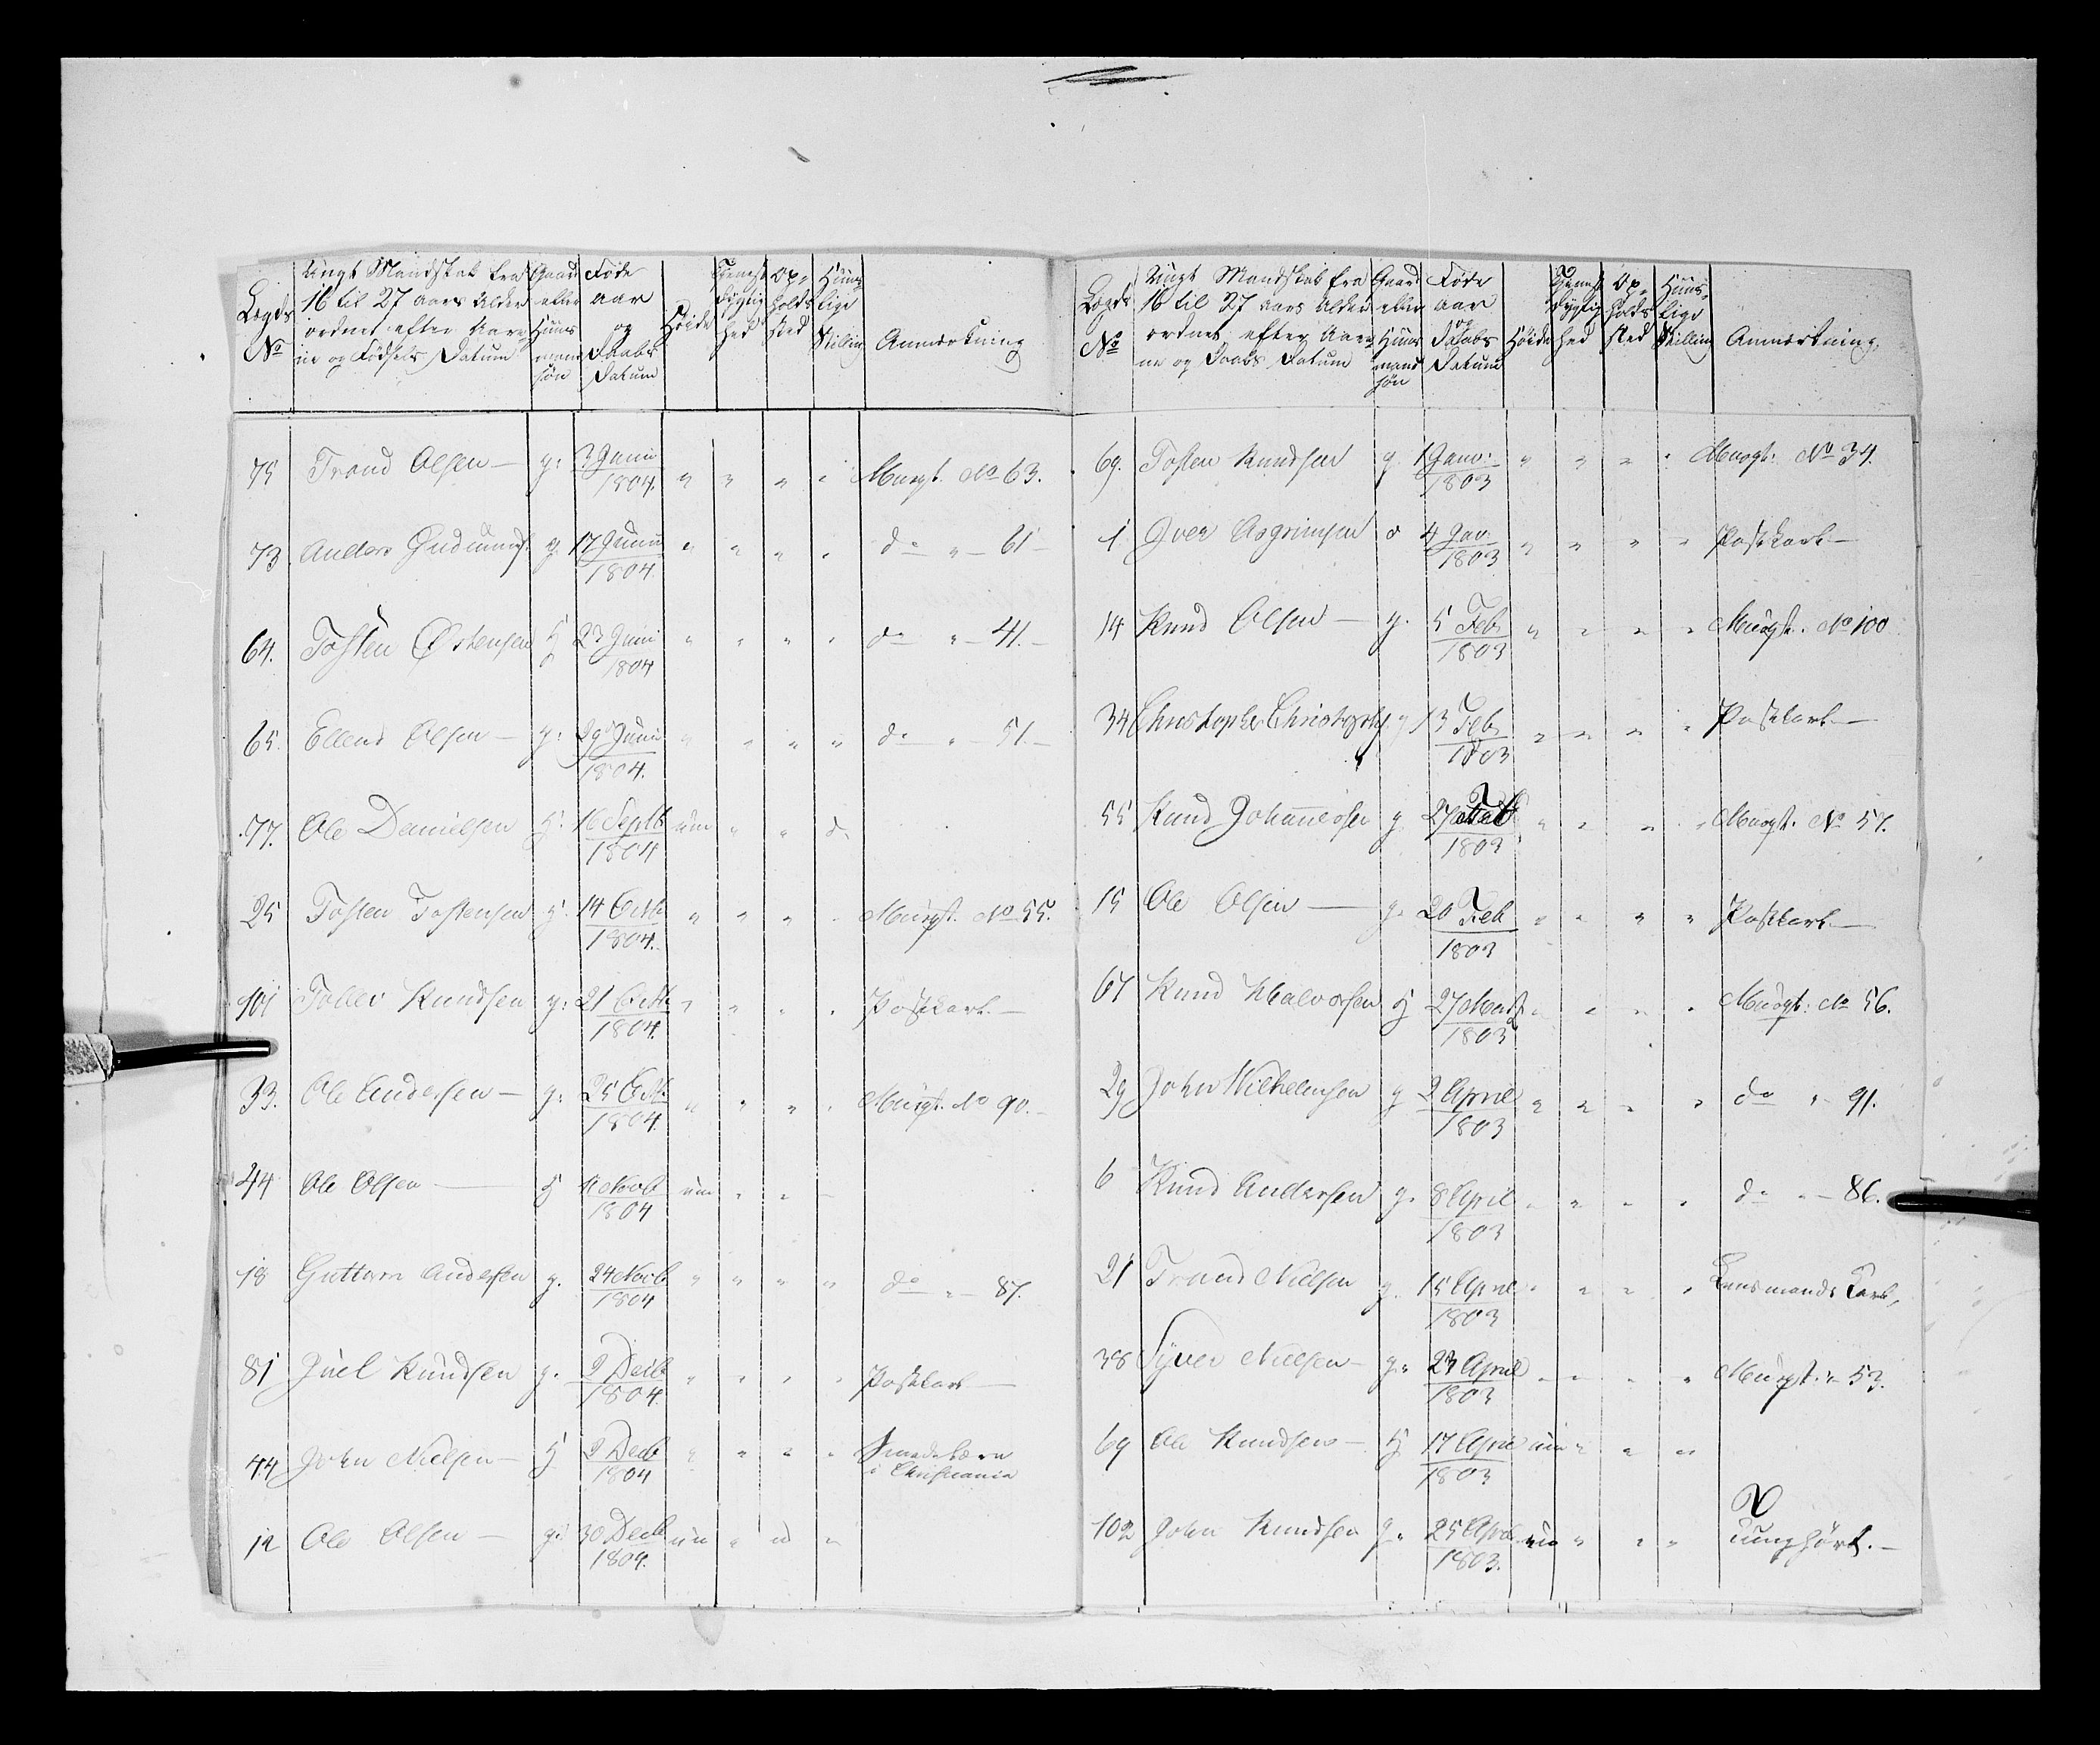 Lægds No
Ungt Mandskab fra 16 til 27 aars Alder ordnet efter Aarene og Fødsels Datum
Gaard eller Huusmands søn
Føde aar og Daabs Datum
Høide
Tjenestdygtighed
Opholdssted
Huuslige Stilling
Anmærkning
75 Trond Olsen — g. 3 Juni 1804. " " " " No 63.
73 Anders Gudmunds. g. 17 Juni 1804 " " " " do " — 61 —
64. Tosten Østensen 23 Juni 1804 " " " " do " — 41. —
65. Ellend Olsen — g. 29 Juni 1804. " " " " do " 51. —
77. Ole Danielsen H. 16 Septb 1804 um " " d.
25 Tosten Tostensen H. 14 Octb. 1804. " " " " No 55.
101 Tollev Knudsen g. 21 Octb. 1804. " " " " Postkarl. —
33. Ole Andersen — g. 25 Octb. 1804. " " " " No 90. —
44 Ole Olsen — H 11 Novb 1804 um " " —
18 Guttorm Andersen g. 24 Novb 1804 " " " " do " — 87.
81 Juel Knudsen g. 2 Decb 1804. " " " " Postkarl —
44 John Nielsen — H 2 Decb 1804 " " " " i Christiania
12 Ole Olsen — g. 30 Decb 1804. um " "
Lægds No
Ungt Mandskab fra 16 til 27 aars Alder ordnet efter Aarene og Daabs Datum
Gaard eller Huusmands søn
Føde aar og Daabs Datum
Høide
Tjenestdygtighed
Opholdssted
Huuslige Stilling
Anmærkning.
69. Tosten Knudsen g. 1 Janv. 1803 " " " " No 34.
1 Iver Asgrimsen 4 Jan. 1803 " " " " Postkarl —
14 Knud Olsen — g. 5 Feb. 1803 " " " " No 100
34 Christopher Christoph. g 13 Feb. 1803 " " " " Postkarl —
55 Knud Johannesen g. 27 Feb 1803 " " " " No 57.
15 Ole Olsen — g. 20 Feb 1803 " " " " Postkarl —
67 Knud Halvorsen H 27 Marts 1803 " " " " No 56.
29 John Wilhelmsen g 2 April 1803 " " " " do " 91.
6 Knud Andersen g. 8 April 1803 " " " " do " — 86.
21 Trond Nielsen g. 15 April 1803 " " " " Lensmands Karl,
38 Syver Nielsen — g. 23 April 1803 " " " " 53.
69 Ole Knudsen — H 17 April 1803 um " " "
102 John Knudsen g. 25 April 1803. um " " " Tunghørt. —